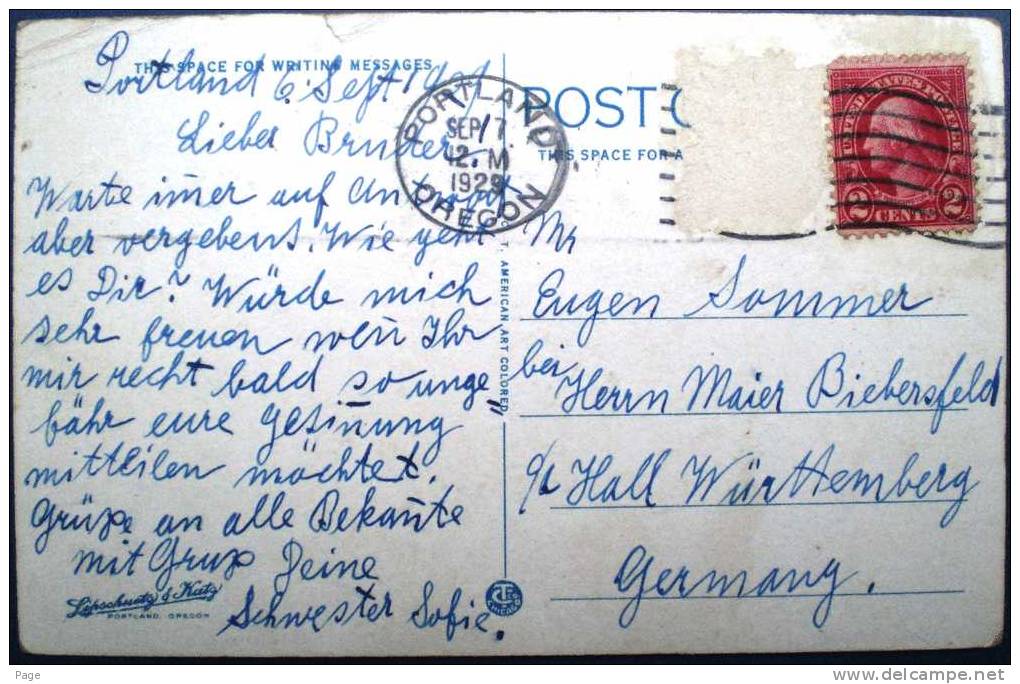 THIS SPACE FOR WRITING MESSAGES
Portland 6. Sept 1929
Lieber Bruder
Warte im̅er auf Antwort
aber vergebens. Wie geht
es Dir? Würde mich
sehr freuen wen̅ Ihr
mir recht bald so unge
fähr eure Gesin̅ung
mitteilen möchtet.
Grüße an alle Bekan̅te
mit Gruß Deine
Schwester Sofie.
Lipschuetz & Katz
PORTLAND, OREGON
PORTLAND
SEP 7
12. M
1929
OREGON
T. AMERICAN ART COLORED
CHICAGO
POST C
THIS SPACE FOR A
UNITED STATES POSTAGE
2 CENTS 2
Mr
Eugen Sommer
bei Herrn Maier Biebersfeld
Hall Württemberg
Germany.
Page
www.delcampe.net